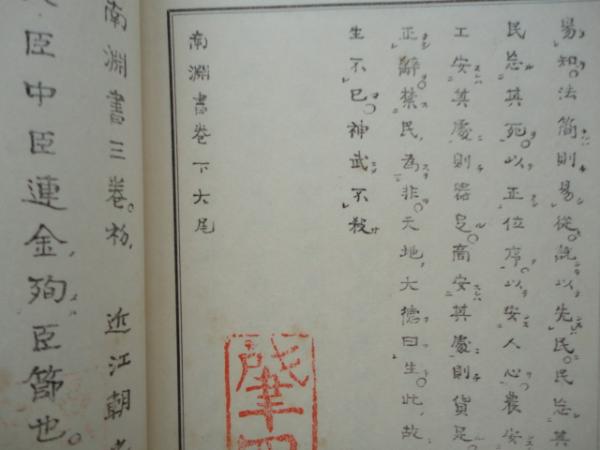 易知。法簡則易從。説以先民。民忘其
民忘其死。以正位序。以安人心。農安
工安其處則器足。商安其處則貨足
正辭禁民為非。天地大德曰生。此故
生不已。神武不殺
南淵書卷下大尾
南淵書三卷。
近江朝
臣中臣連金殉臣節也。